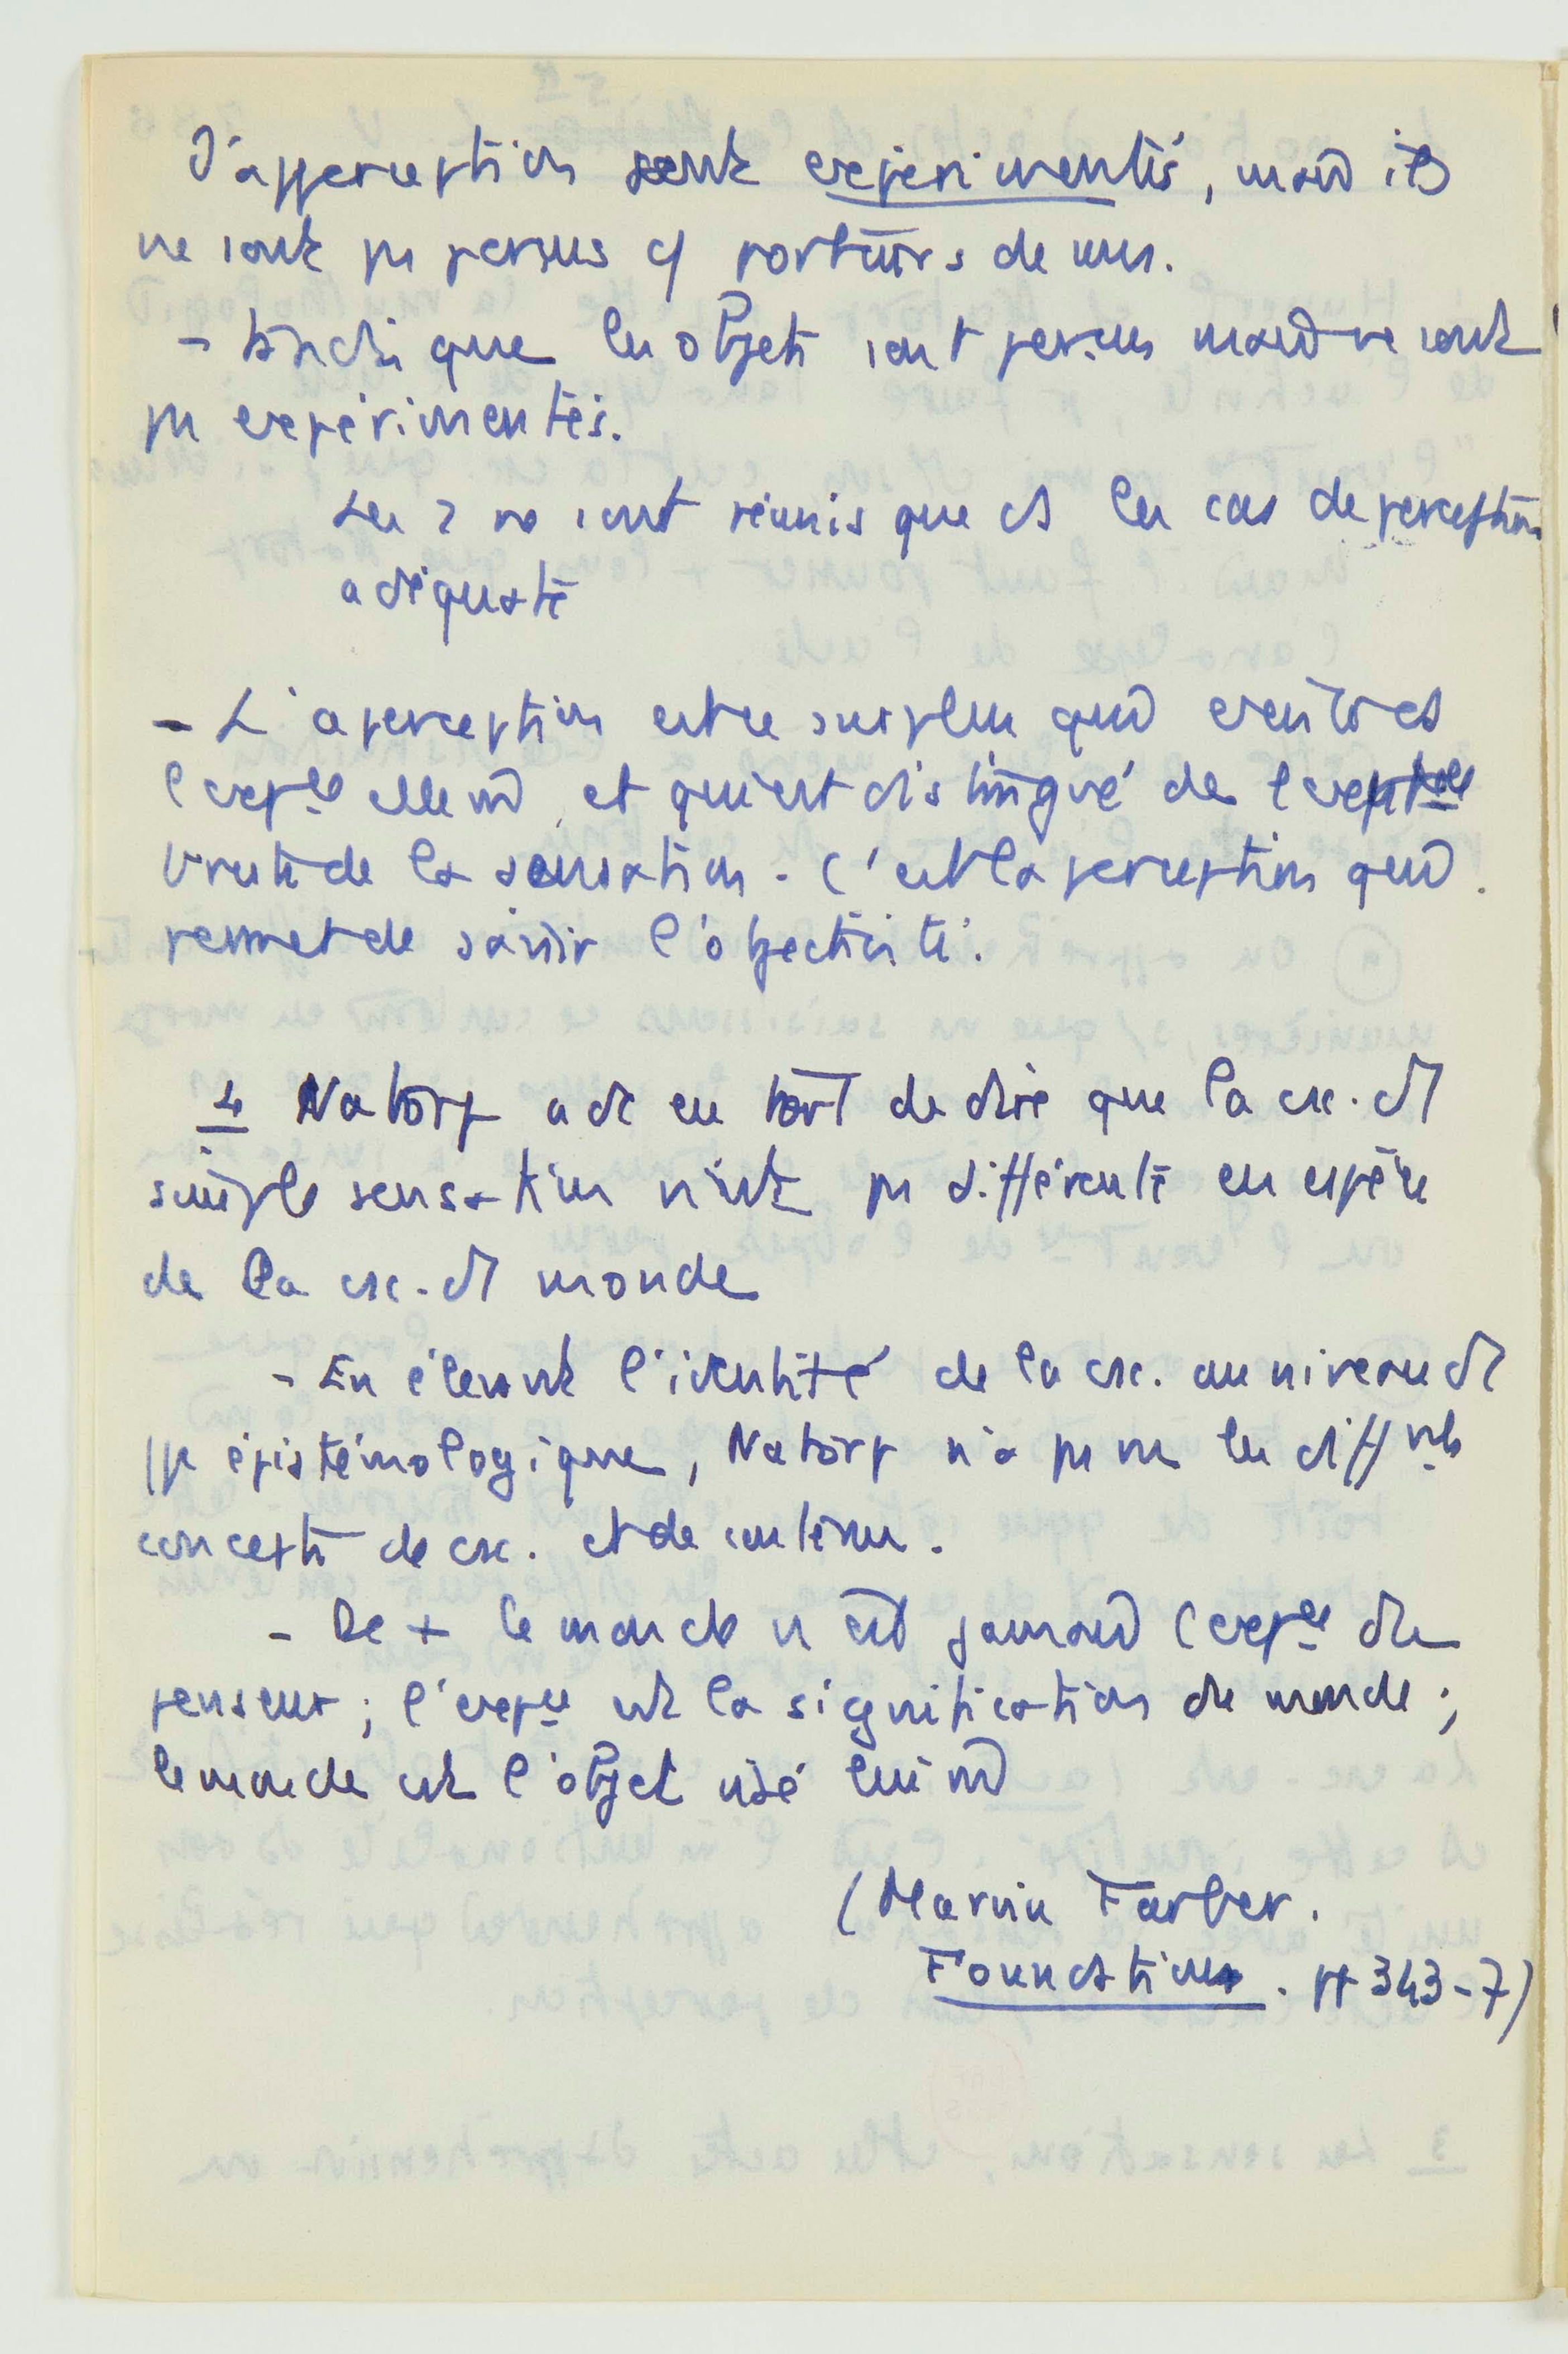 d'apperception sont expérimentés, mais ils
ne sont pas perçus c/ porteurs de sens.
- tandis que les objets sont perçus mais ne sont
pas expérimentés.
Les 2 ne sont réunis que ds les cas de perception
adéquate
- L'aperception est ce surplus qui existe ds
l'exp ce elle m̂, et qui est distingué de l'exp ce
brute de la sensation. C'est la perception qui
permet de saisir l'objectivité.
4 Natorp a dc eu tort de dire que la csc. d'1
simple sensation n'est pas différente en espèce
de la csc. d'1 monde
- En élevant l'identité de la csc. au niveau d'1
ppe épistémologique, Natorp n'a pas vu les diff nts
concepts de csc. et de contenu.
- De + le monde n'est jamais l'exp ce du
penseur ; l'exp ce est la signification du monde ;
le monde est l'objet visé lui m̂
(Marvin Farber.
Foundations. pp 343-7)